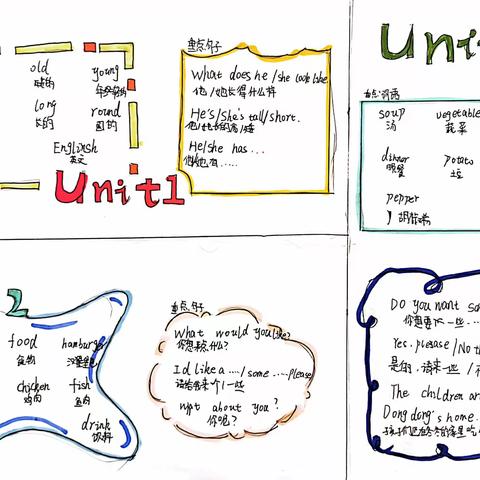 old young
年轻的
long round
长的 圆的
English
英文
Unit1
重点句子
What does he/she look like
他/她长得什么样
He's/She's tall/short.
He/she has...
Uni
重点词语
soup vegetable
汤 蔬菜
dinner Potato
晚餐 土豆
pepper
2
food hamburge
食物 汉堡包
chicken fish
鸡肉 鱼肉
drink
饮料
重点句子
What would you like?
你想要点什么?
I'd like a ..../some .....please
请给我来个/一些
What about you?
你呢?
Do you want so
你想要一些....
Yes, please/No th
是的,请来一些/
The children ar
Dong dong's home.